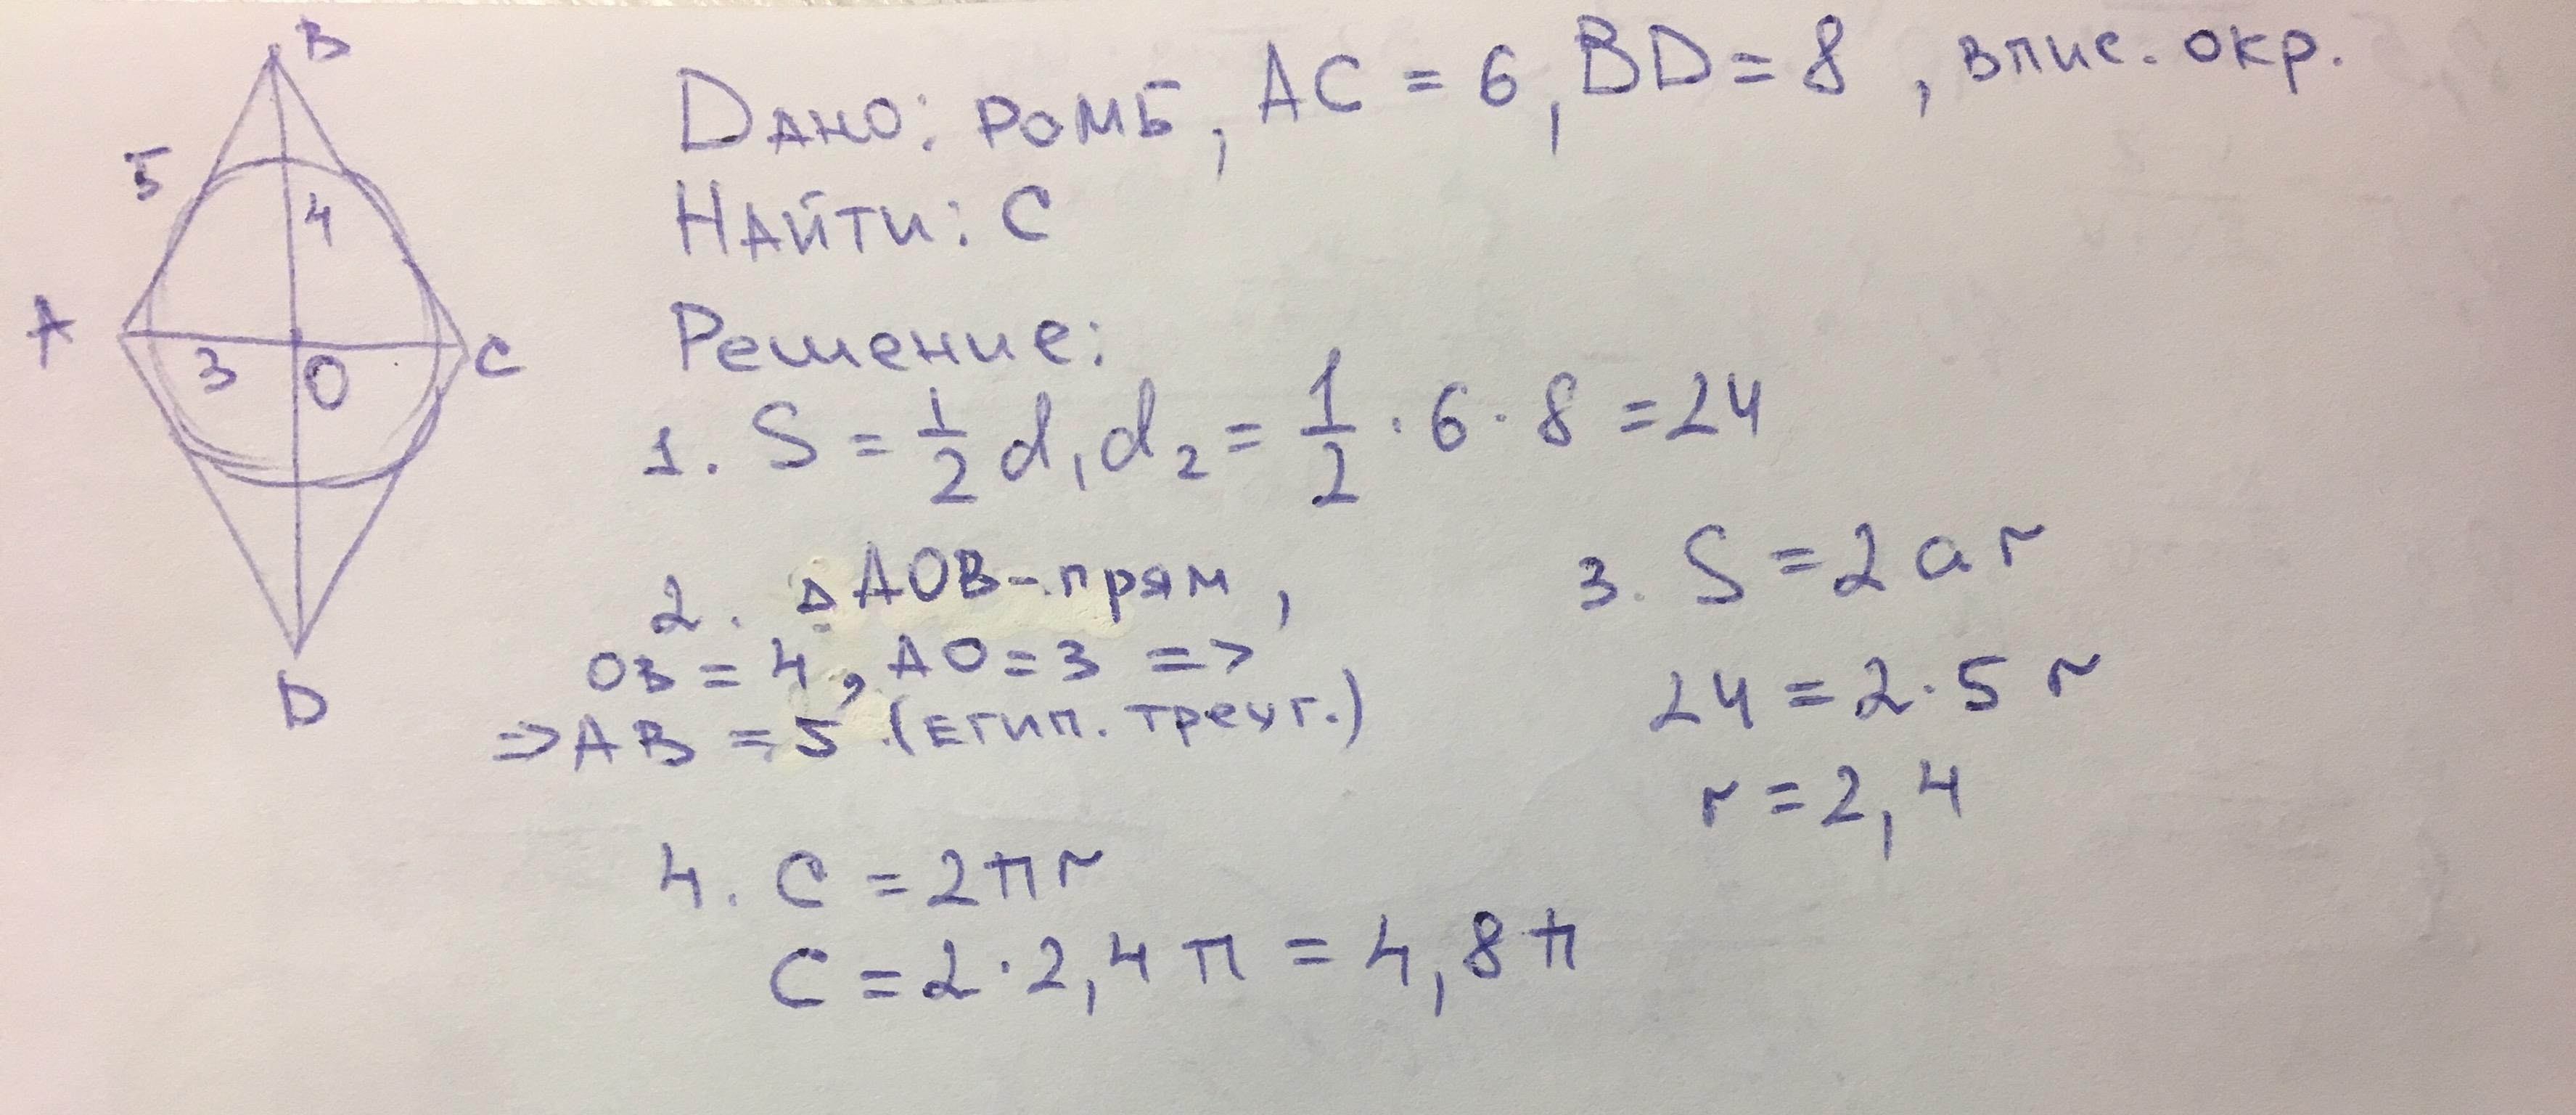 B
5
4
A
3
O
C
D
Дано: ромб, AC = 6, BD = 8, впис. окр.
Найти: C
Решение:
1. S = 1/2 d₁d₂ = 1/2 · 6 · 8 = 24
2. △AOB – прям,
OB = 4, AO = 3 =>
=> AB = 5 (египт. треуг.)
3. S = 2ar
24 = 2 · 5 r
r = 2,4
4. C = 2πr
C = 2 · 2,4 π = 4,8 π